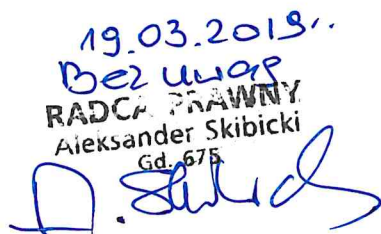 19.03.2019.
Bez uwag
RADCA PRAWNY
Aleksander Skibicki
Gd. 675
A. Skibicki